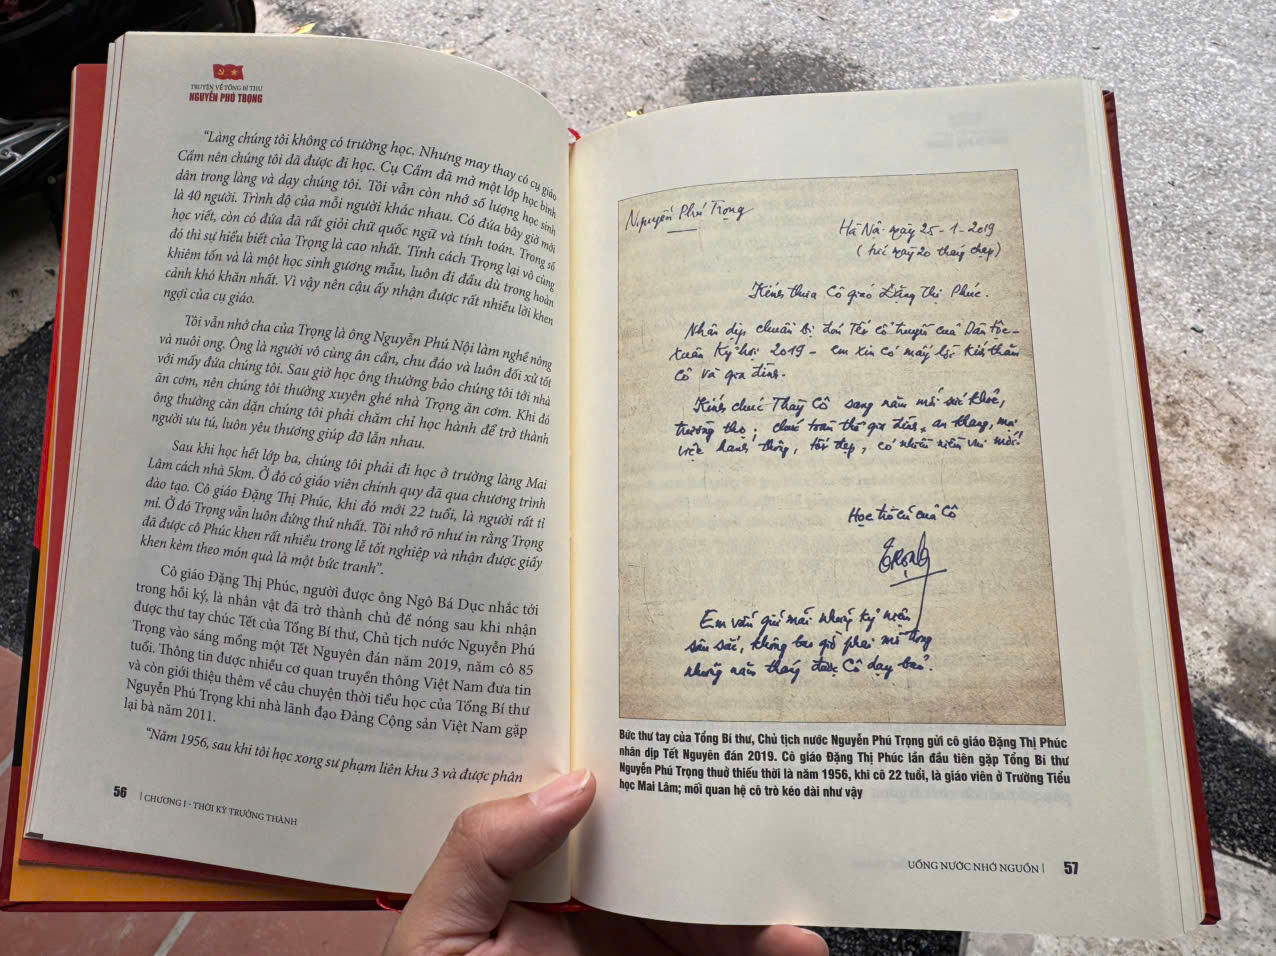 TRUYỆN VỀ TỔNG BÍ THƯ
NGUYỄN PHÚ TRỌNG
“Làng chúng tôi không có trường học. Nhưng may thay có cụ giáo
Cẩm nên chúng tôi đã được đi học. Cụ Cẩm đã mở một lớp học bình
dân trong làng và dạy chúng tôi. Tôi vẫn còn nhớ số lượng học sinh
là 40 người. Trình độ của mỗi người khác nhau. Có đứa bây giờ mới
học viết, còn có đứa đã rất giỏi chữ quốc ngữ và tính toán. Trong số
đó thì sự hiểu biết của Trọng là cao nhất. Tính cách Trọng lại vô cùng
khiêm tốn và là một học sinh gương mẫu, luôn đi đầu dù trong hoàn
cảnh khó khăn nhất. Vì vậy nên cậu ấy nhận được rất nhiều lời khen
ngợi của cụ giáo.
Tôi vẫn nhớ cha của Trọng là ông Nguyễn Phú Nội làm nghề nông
và nuôi ong. Ông là người vô cùng ân cần, chu đáo và luôn đối xử tốt
với mấy đứa chúng tôi. Sau giờ học ông thường bảo chúng tôi tới nhà
ăn cơm, nên chúng tôi thường xuyên ghé nhà Trọng ăn cơm. Khi đó
ông thường căn dặn chúng tôi phải chăm chỉ học hành để trở thành
người ưu tú, luôn yêu thương giúp đỡ lẫn nhau.
Sau khi học hết lớp ba, chúng tôi phải đi học ở trường làng Mai
Lâm cách nhà 5km. Ở đó có giáo viên chính quy đã qua chương trình
đào tạo. Cô giáo Đặng Thị Phúc, khi đó mới 22 tuổi, là người rất tỉ
mỉ. Ở đó Trọng vẫn luôn đứng thứ nhất. Tôi nhớ rõ như in rằng Trọng
đã được cô Phúc khen rất nhiều trong lễ tốt nghiệp và nhận được giấy
khen kèm theo món quà là một bức tranh”.
Cô giáo Đặng Thị Phúc, người được ông Ngô Bá Dục nhắc tới
trong hồi ký, là nhân vật đã trở thành chủ đề nóng sau khi nhận
được thư tay chúc Tết của Tổng Bí thư, Chủ tịch nước Nguyễn Phú
Trọng vào sáng mồng một Tết Nguyên đán năm 2019, năm cô 85
tuổi. Thông tin được nhiều cơ quan truyền thông Việt Nam đưa tin
và còn giới thiệu thêm về câu chuyện thời tiểu học của Tổng Bí thư
Nguyễn Phú Trọng khi nhà lãnh đạo Đảng Cộng sản Việt Nam gặp
lại bà năm 2011.
“Năm 1956, sau khi tôi học xong sư phạm liên khu 3 và được phân
56 | CHƯƠNG I - THỜI KỲ TRƯỞNG THÀNH
Nguyễn Phú Trọng
Hà Nội ngày 25-1-2019
(tức ngày 20 tháng chạp)
Kính thưa Cô giáo Đặng Thị Phúc.
Nhân dịp chuẩn bị đón Tết cổ truyền của Dân tộc -
Xuân Kỷ hợi 2019 - em xin có mấy lời kính thăm
Cô và gia đình.
Kính chúc Thầy Cô sang năm mới sức khoẻ,
trường thọ; chúc toàn thể gia đình an khang, mọi
việc hanh thông, tốt đẹp, có nhiều niềm vui mới!
Học trò cũ của Cô
Trọng
Em vẫn giữ mãi những kỷ niệm
sâu sắc, không bao giờ phai mờ trong
những năm tháng được Cô dạy bảo.
Bức thư tay của Tổng Bí thư, Chủ tịch nước Nguyễn Phú Trọng gửi cô giáo Đặng Thị Phúc
nhân dịp Tết Nguyên đán 2019. Cô giáo Đặng Thị Phúc lần đầu tiên gặp Tổng Bí thư
Nguyễn Phú Trọng thuở thiếu thời là năm 1956, khi cô 22 tuổi, là giáo viên ở Trường Tiểu
học Mai Lâm; mối quan hệ cô trò kéo dài như vậy
UỐNG NƯỚC NHỚ NGUỒN | 57